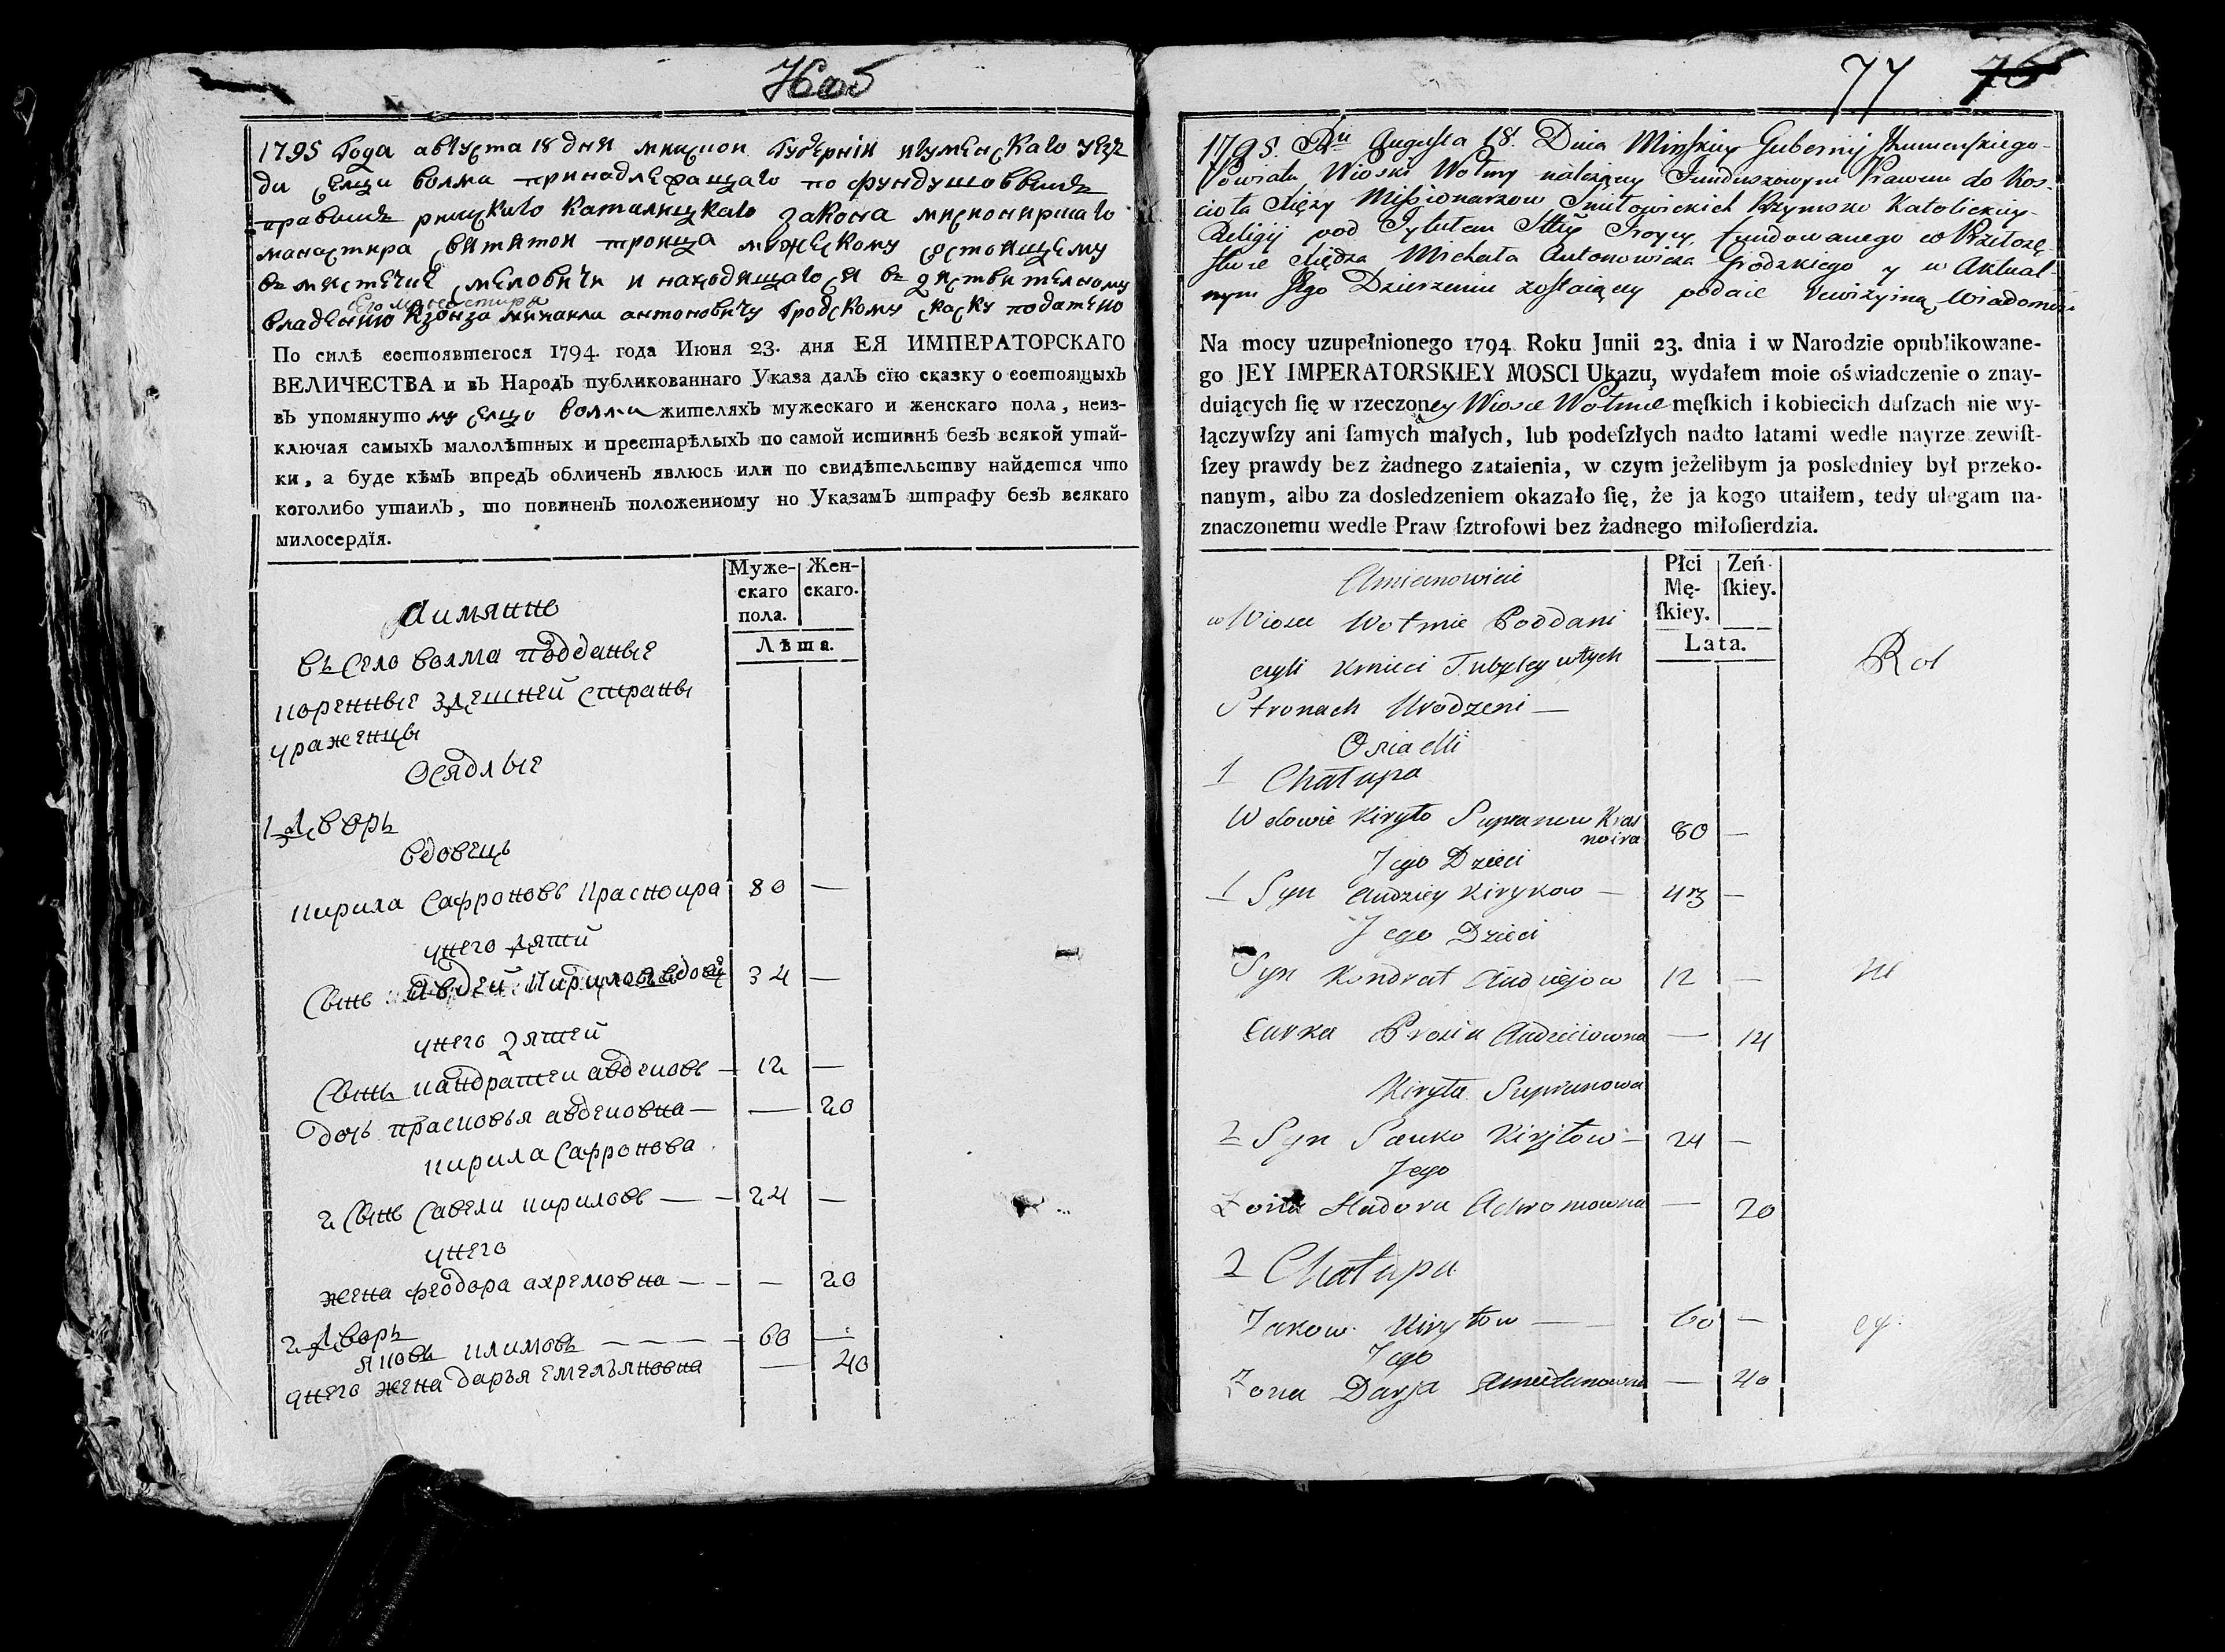 76 об
1795 года августа 18 дня минской губерніи игуменскаго уез
да села волма принадлежащаго по фундушоввимъ
правамъ римскаго католицкаго закона мисионирскаго
манастира святитои троица мужескому состоящему
въ мистечке смиловичи и находящагося въ действителному
его манастира
владению ксонза михаила антоновичу гродскому скаску подателю
По силѣ состоявшегося 1794. года Июня 23. дня ЕЯ ИМПЕРАТОРСКАГО
ВЕЛИЧЕСТВА и въ Народъ публикованнаго Указа далъ сїю сказку о состоящыхъ
въ упомянутому селцо волма жителяхъ мужескаго и женскаго пола, неиз-
ключая самыхъ малолѣтныхъ и престарѣлыхъ по самой истиннѣ безъ всякой утай-
ки, а буде кѣмъ впредъ обличенъ явлюсь или по свидѣтельству найдется что
коголибо утаилъ, то повиненъ положенному по Указамъ штрафу безъ всякаго
милосердїя.
Муже-
скаго
пола.
Жен-
скаго.
Лѣта.
Аимянно
въ село волма подданые
коренные здешней страны
ураженцы
Осядлые
1 дворъ
вдовецъ
кирила Сафроновъ Красноира 80 —
унего дятй
Сынъ Авдей Кириловъ вдовец 34 —
унего дятей
Сынъ кандратеи авдеиовъ — 12 —
дочъ прасковья авдеиовна — — 20
кирила Сафронова
2 Сынъ Савели кириловъ — — 24 —
унего
жена феодора ахремовна — — — 20
2 дворъ
яковъ климовъ — — — — 60 —
унего жена даръя емельяновна — 40
77 76
1795. Ru Augusta 18. Dnia Minskiey Gubernij Ihumenskiego
Powiatu Wioski Wołmy należącey Funduszowym Prawem do Kos-
cioła Xięży Missionarzow Smiłowickich Rzymsko Katolickiey
Religij pod Tytułem Stey Troycy, fundowanego w Przełożę-
stwie Xiędza Michała Antonowicza Grodzkiego y w Aktual-
nym Jego Dzierzeniu zostaiącey podaie Rewizyiną Wiadomość
Na mocy uzupełnionego 1794 Roku Junii 23. dnia i w Narodzie opublikowane-
go JEY IMPERATORSKIEY MOSCI Ukazu, wydałem moie oświadczenie o znay-
duiących ſię w rzeczoney Wiosce Wołmie męſkich i kobiecich duſzach nie wy-
łączywſzy ani ſamych małych, lub podeſzłych nadto latami wedle nayrze zewiſt-
ſzey prawdy bez żadnego zataienia, w czym jeżelibym ja posledniey był przeko-
nanym, albo za dosledzeniem okazało ſię, że ja kogo utaiłem, tedy ulegam na-
znaczonemu wedle Praw ſztrofowi bez żadnego miłoſierdzia.
Płci
Mę-
ſkiey.
Zeń-
ſkiey.
Lata.
Amianowicie
w Wiosce Wołmie Poddani
czyli Kmieci Tuteyszych
Stronach Urodzeni —
Osiadli
1 Chałupa
Wdowie Kiryło Supranow Kras
noira 80 —
Jego Dzieci
1 Syn Audziey Kirykow — 43 —
Jego Dzieci
Syn Kondrat Audziejow 12 —
Curka Prosia Audzieiowna — 14
Kiryła Suprunowa
2 Syn Sauko Kiryłow — 24 —
Jego
Zona Hadora Achromowna — 20
2 Chałupa
Jakow Kiryłow — — 60 —
Jego
Zona Darja Amielanowna — 40